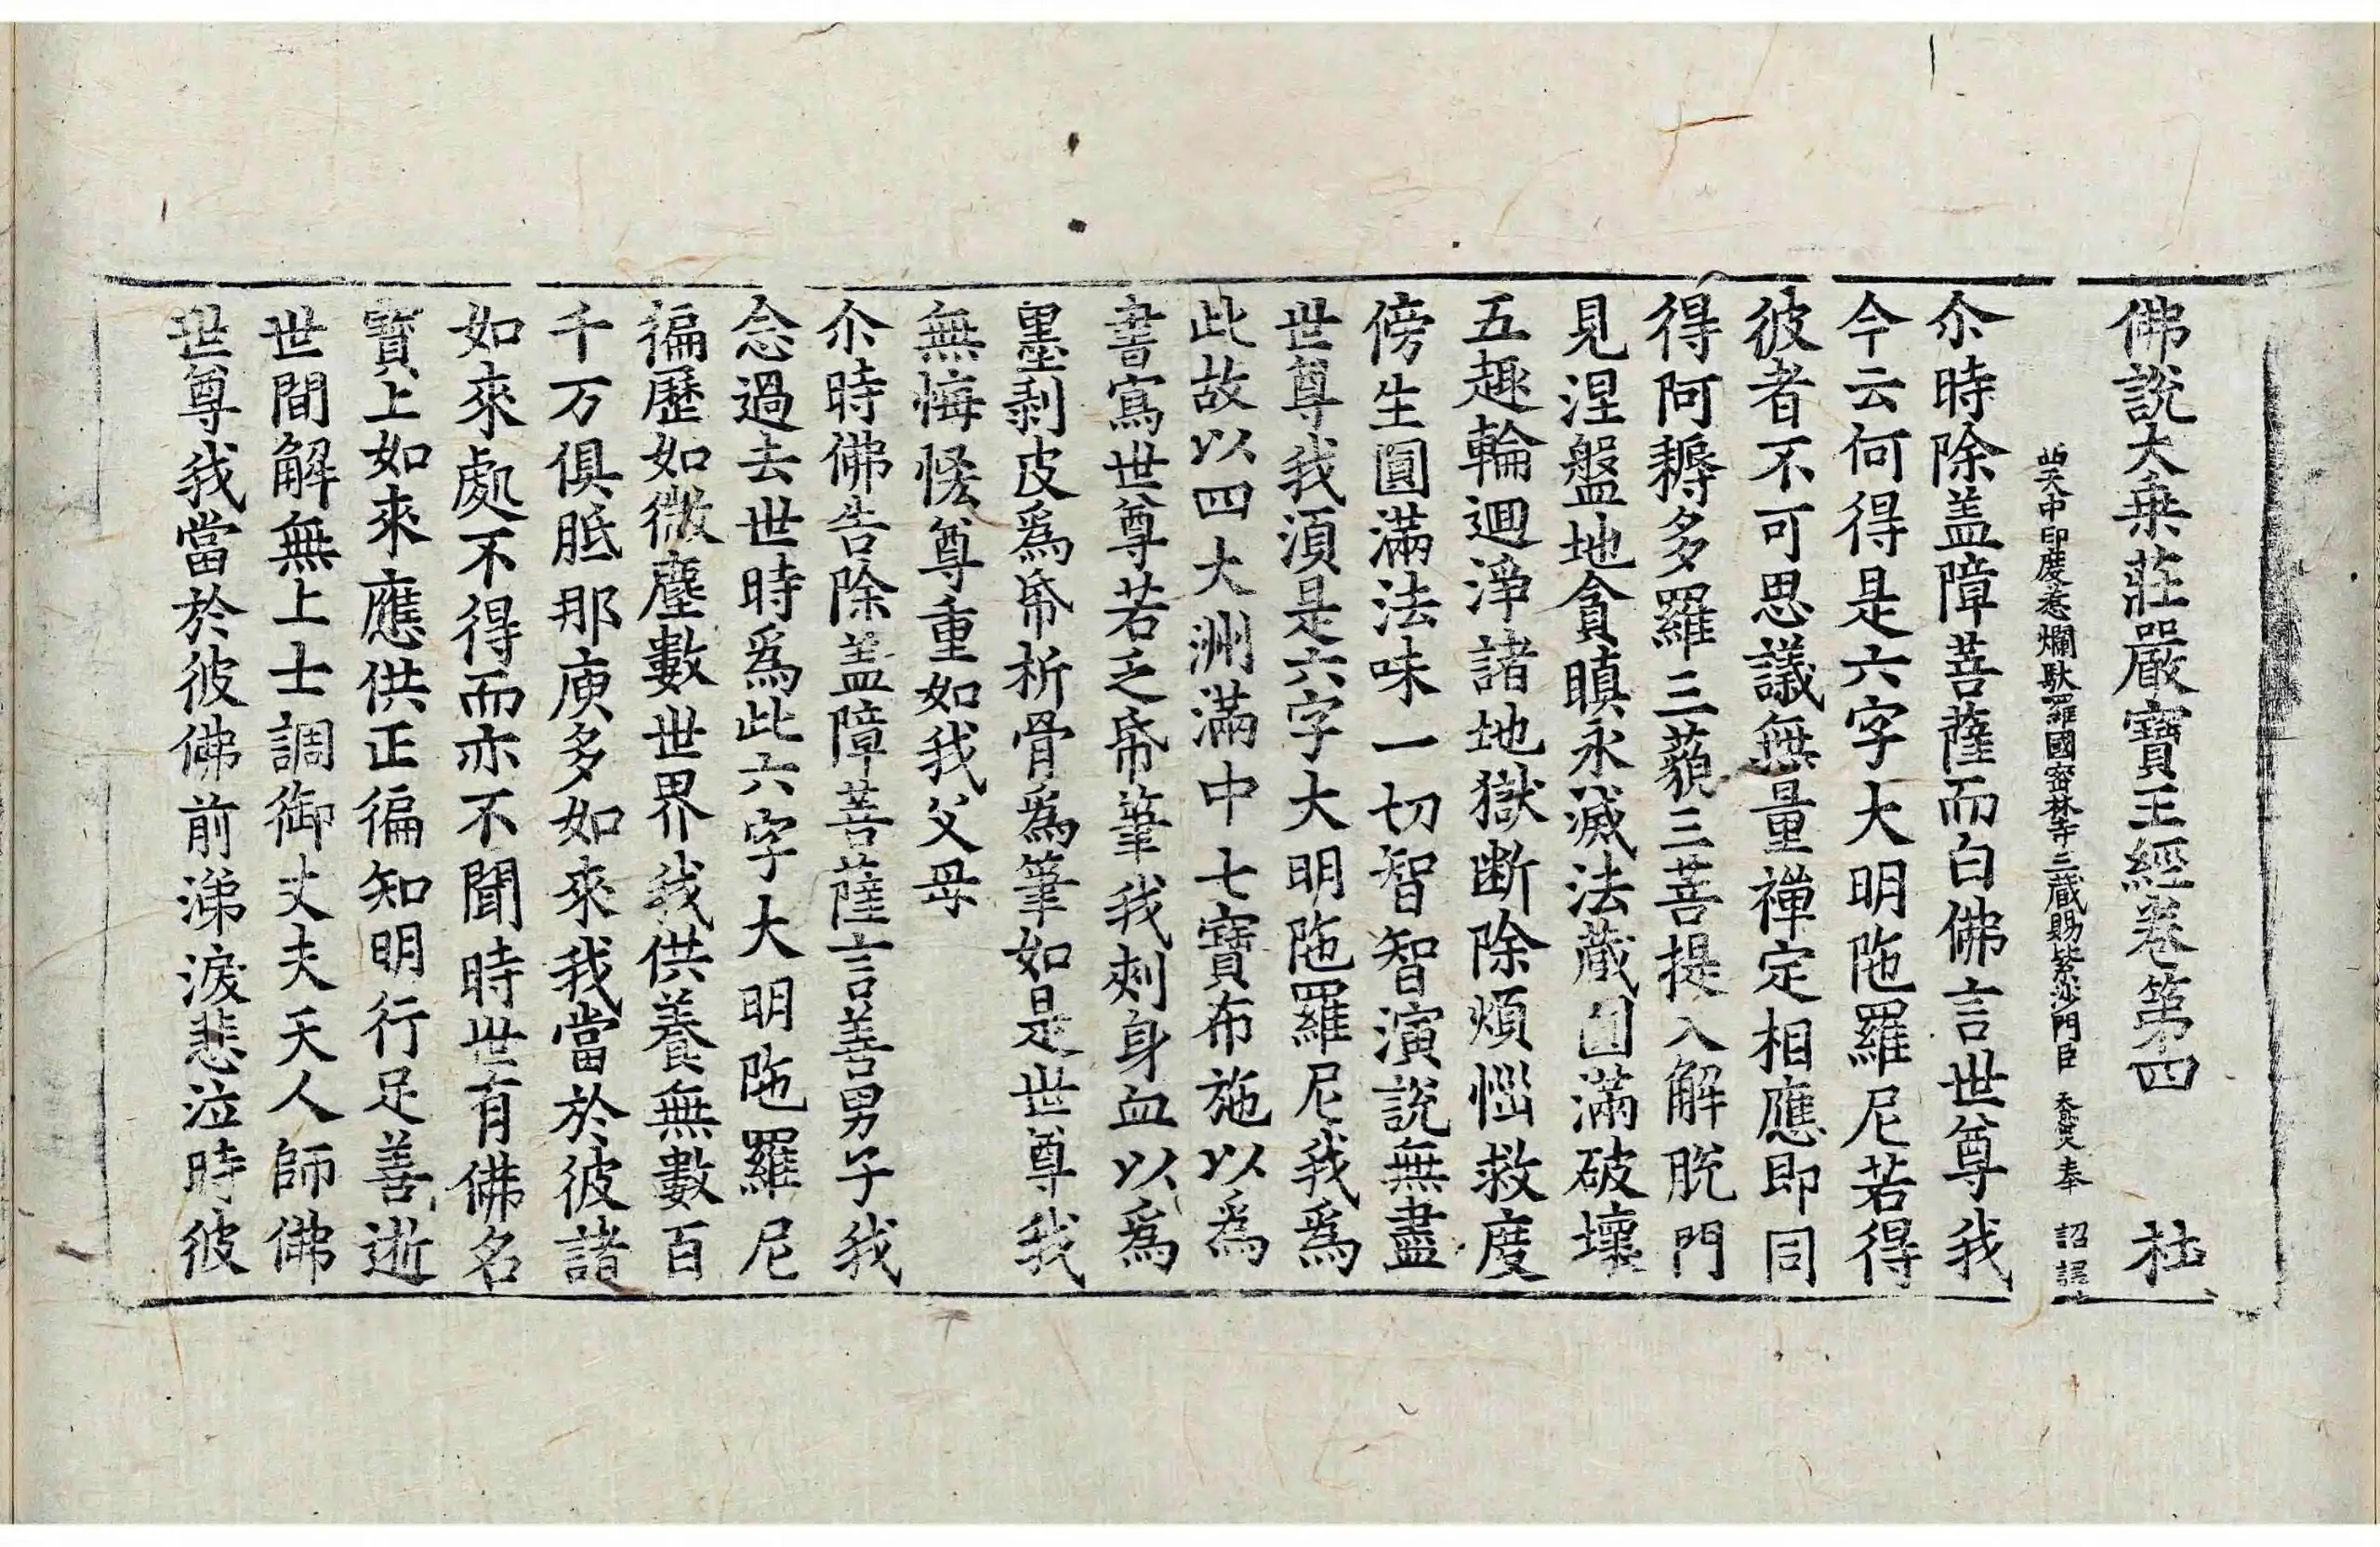 佛說大乗莊嚴寳王經卷第四 杜
西天中印度惹爛馱羅國密林寺三藏賜紫沙門臣 天息災奉 詔譯
尒時除盖障菩薩而白佛言世尊我
今云何得是六字大明陁羅尼若得
彼者不可思議無量禪定相應即同
得阿耨多羅三藐三菩提入解脫門
見涅盤地貪瞋永滅法蔵圓滿破壞
五趣輪迴淨諸地獄断除煩惱救度
傍生圓滿法味一切智智演說無盡
世尊我湏是六字大明陁羅尼我爲
此故以四大洲滿中七寳布施以爲
書寫世尊若乏帋筆我刾身血以爲
墨剥皮爲帋析骨爲筆如是世尊我
無悔恡尊重如我父母
尒時佛告除盖障菩薩言善男子我
念過去世時爲此六字大明陁羅尼
徧歷如微塵數世界我供養無數百
千万俱胝那庾多如來我當於彼諸
如來處不得而亦不聞時世有佛名
寳上如來應供正徧知明行足善逝
世間解無上士調御丈夫天人師佛
世尊我當於彼佛前涕淚悲泣時彼